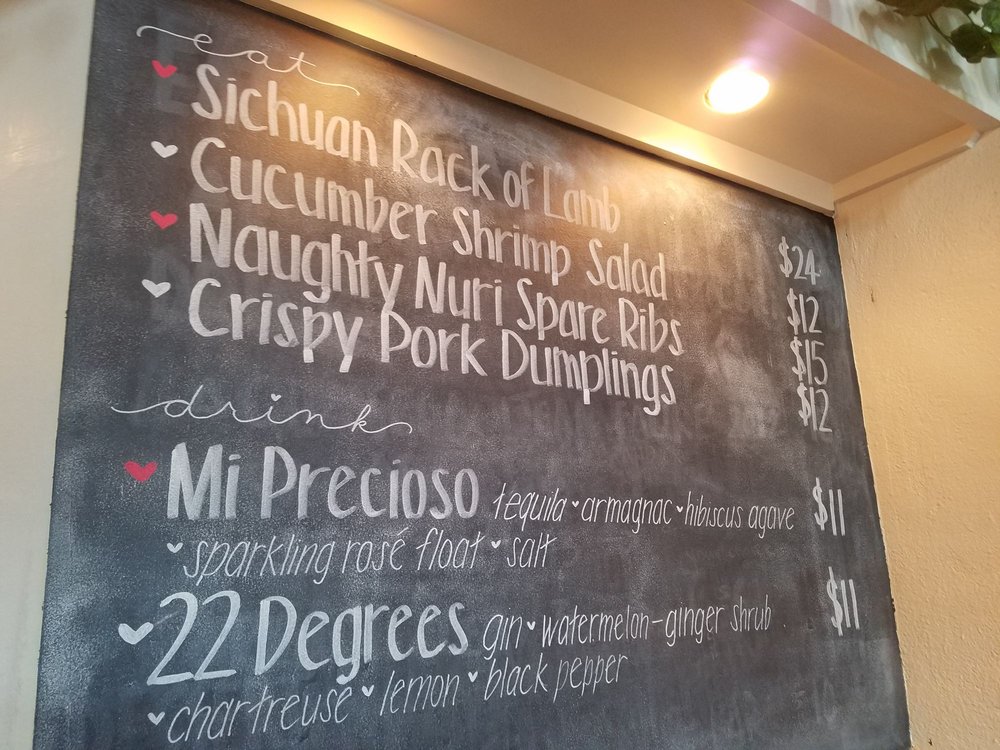 eat
Sichuan Rack of Lamb $24
Cucumber Shrimp Salad $12
Naughty Nuri Spare Ribs $15
Crispy Pork Dumplings $12
drink
Mi Precioso tequila armagnac hibiscus agave $11
sparkling rosé float salt
22 Degrees gin watermelon-ginger shrub $11
chartreuse lemon black pepper